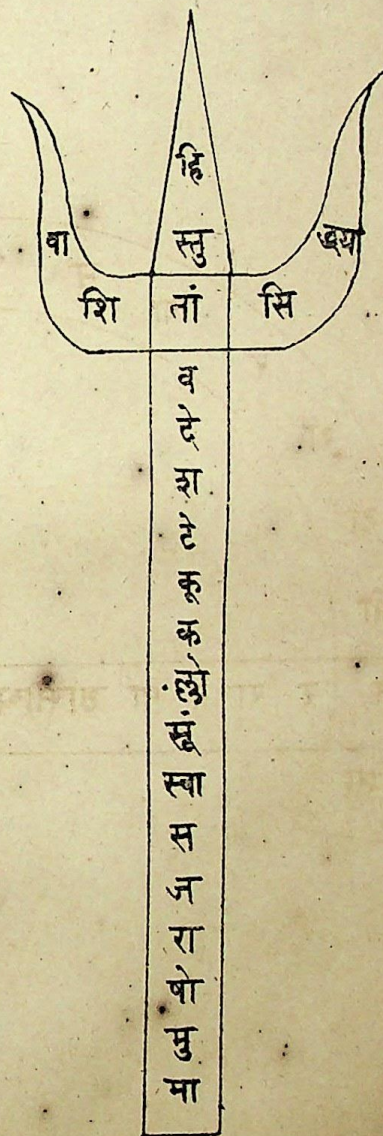 हि
वा स्तु द्ध्या
शि तां सि
व
दे
श
टे
कू
क
ल्लो
सूं
स्वा
स
ज
रा
षो
मु
मा